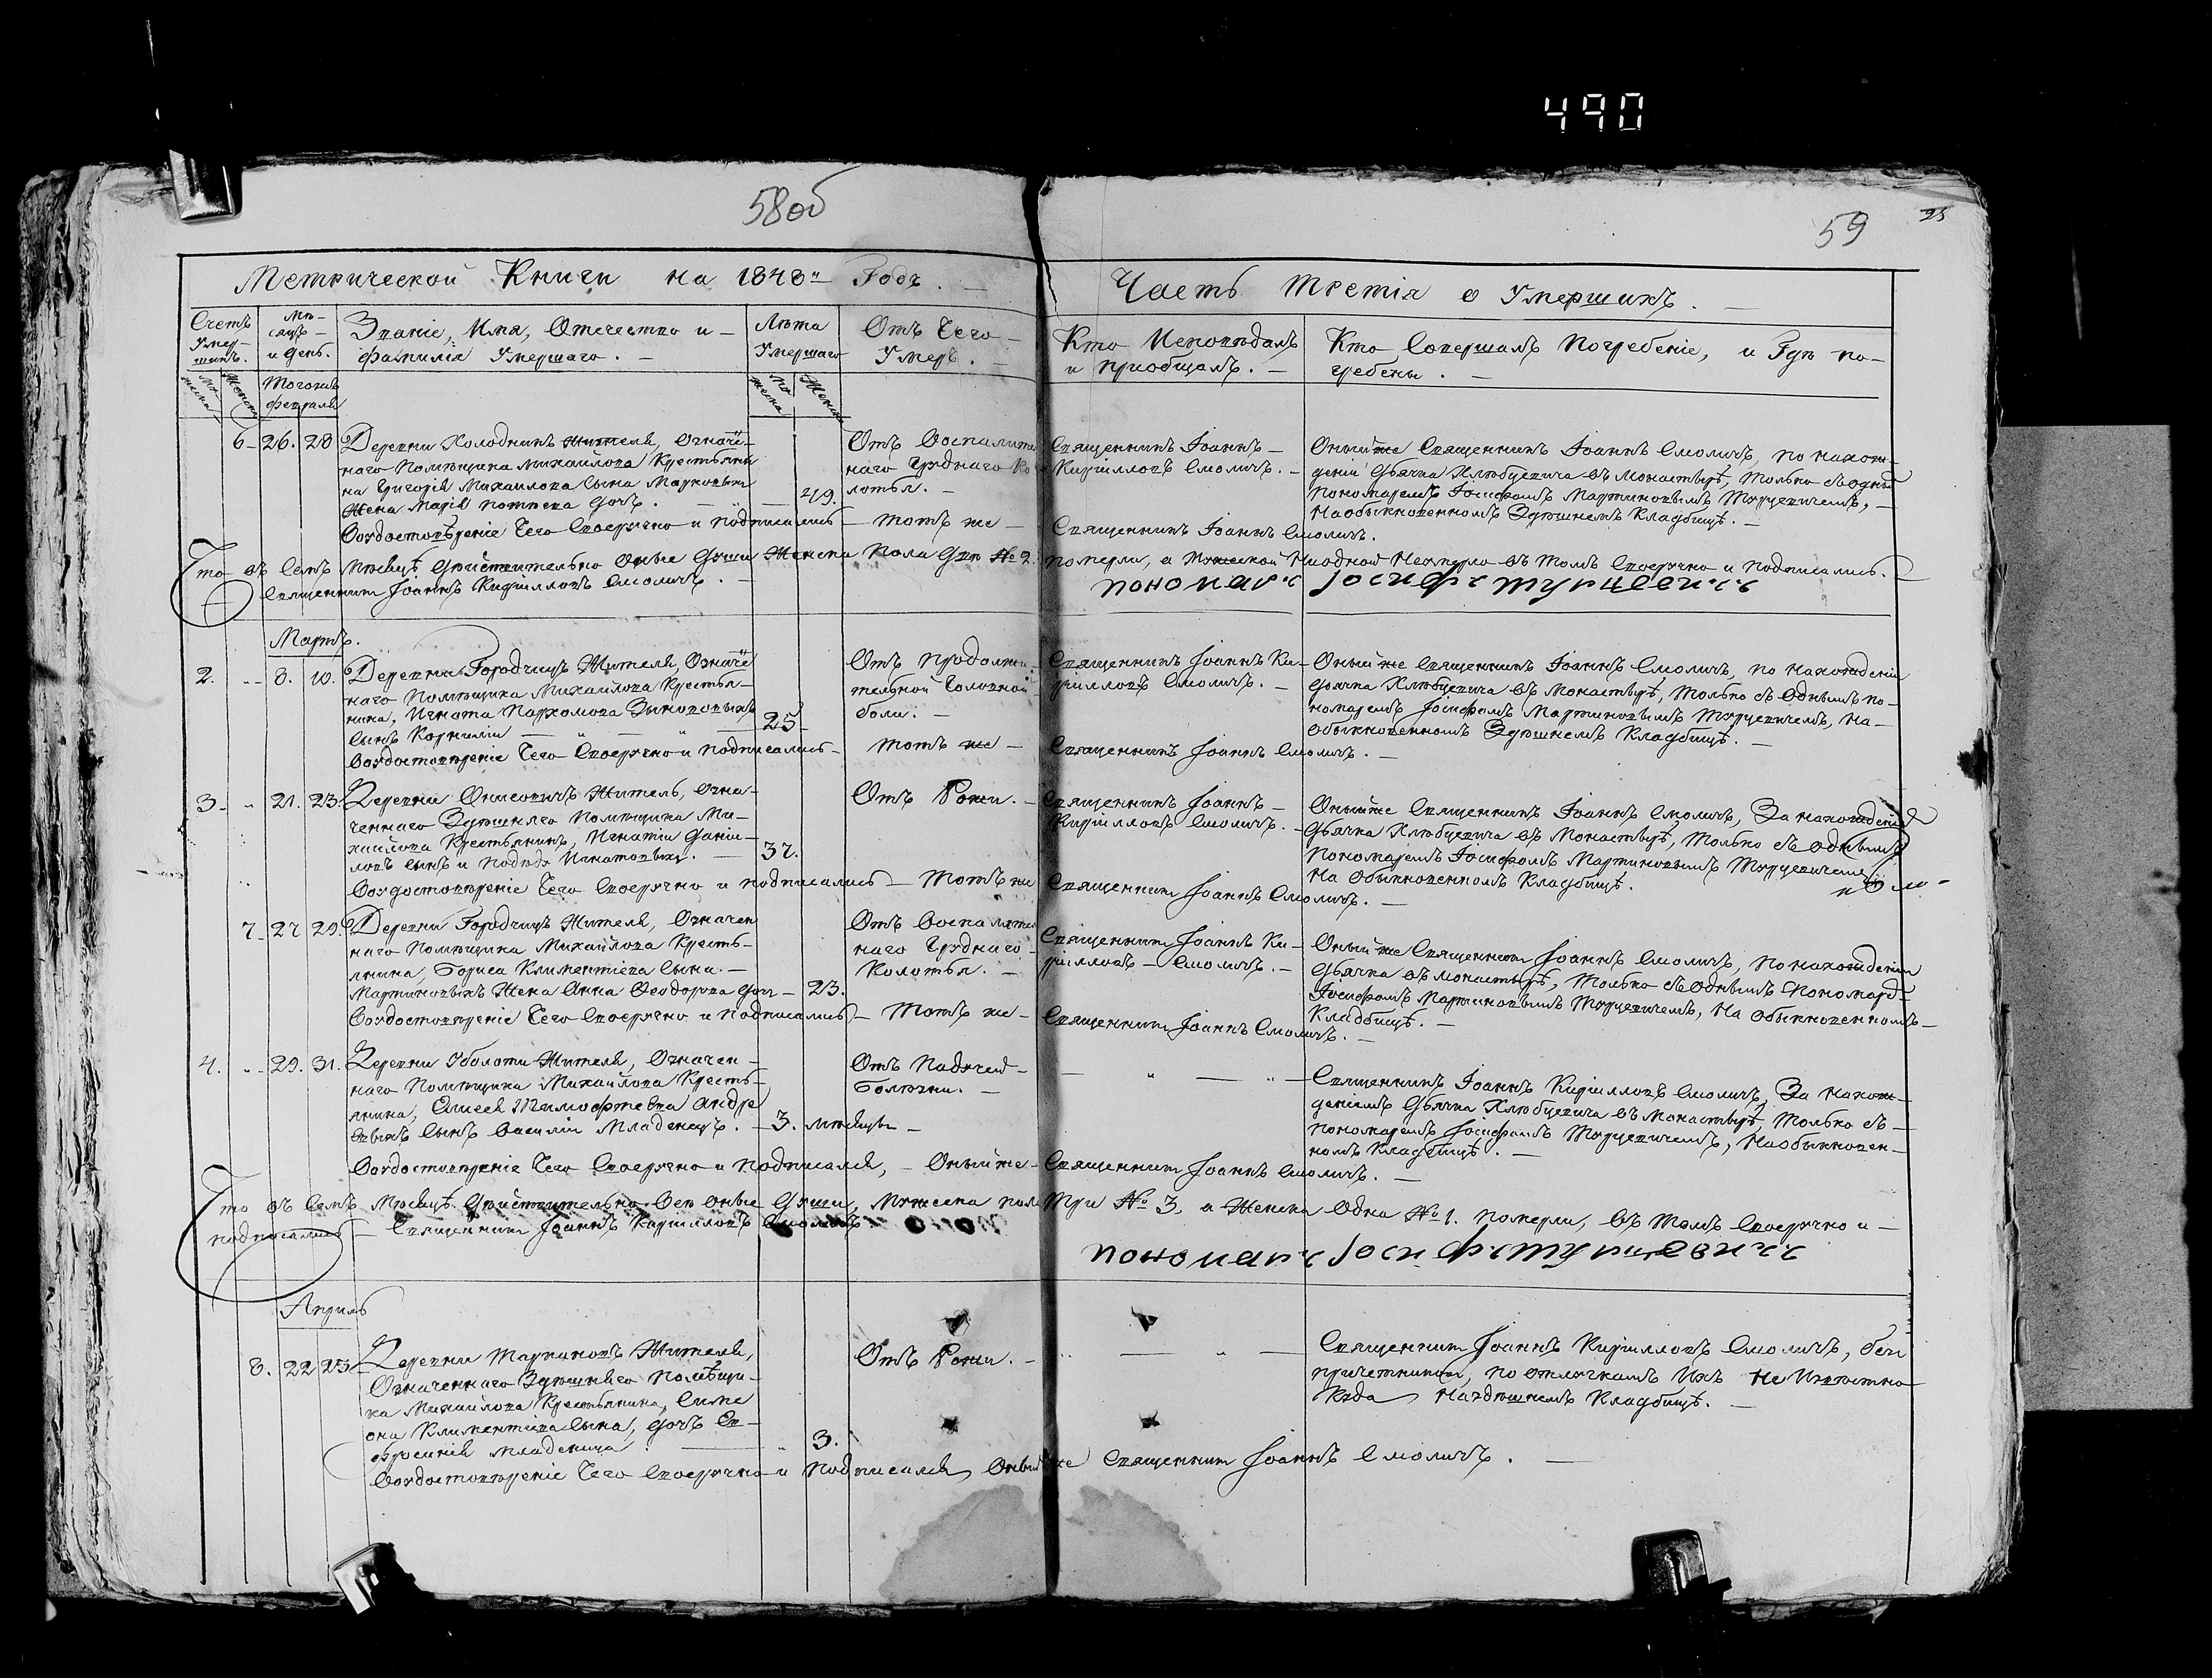 490
58об
59
25
Метрической Книги на 1848й Годъ.
Часть третія о Умершихъ.
Счетъ Умершихъ.
Мѣсяцъ и день.
Званіе, Имя, Отечество и
фамилія Умершаго.
Лѣта
Умершаго
Отъ Чего
Умеръ.
Кто Исповѣдалъ
и пріобщалъ.
Кто Совершалъ Погребеніе, и Гдѣ по-
гребены.
Февраля
6 26. 28
Деревни Холодникъ Жителя, Означе-
наго Помѣщика Михайлова Крестьяни
на Григорія Михаилова сына
Жена Марія дочь.
49.
Отъ Воспалите
наго Груднаго Ко
лотья.
Священникъ Іоаннъ
Кирилловъ Смоличъ.
Оный же Священникъ Іоаннъ Смоличъ, по нахож-
деніи Дьячка Хлѣбцевича въ Монастырѣ, только съ однымъ
Пономаремъ Іосифомъ Мартиновымъ Турцевичемъ,
На обыкновенномъ Здѣшнемъ Кладбищѣ.
Во удостовѣреніе Чего Своеручно и подписались тотъ же Священникъ Іоаннъ Смоличъ.
Что въ Семъ Мѣсяцѣ Дѣйствительно Оные Души Женска Пола Двѣ № 2. померли, а Мужеской Ниодной Неумерло въ томъ Своеручно и Подписались.
Священникъ Іоаннъ Кирилловъ Смоличъ.
пономаръ Іосифъ турцевичъ
Мартъ.
2. 8. 10.
Деревни Городчицъ Жителя, Означе
наго Помѣщика Михайлова Крестья-
нина, Игната Пархомова Зыновыхъ
сынъ Корнилій
25
Отъ продолжи-
тельной Головной
боли.
Священникъ Іоаннъ Ки-
рилловъ Смоличъ.
Оный же Священникъ Іоаннъ Смоличъ, по нахожденіи
Дьячка Хлѣбцевича въ Монастырѣ, только съ Однымъ по-
номаремъ Іосифомъ Мартиновымъ Турцевичемъ, на
Обыкновенномъ Здѣшнемъ Кладбищѣ.
Во удостовѣреніе Чего Своеручно и подписались тотъ же Священникъ Іоаннъ Смоличъ.
3. 21. 23.
Деревни Житель, Озна-
ченнаго Здѣшняго Помѣщика Ми-
хайлова Крестьянинъ, Игнатій Даніи-
ловъ сынъ
37.
Отъ Рожи.
Священникъ Іоаннъ
Кирилловъ Смоличъ.
Оный же Священникъ Іоаннъ Смоличъ, За нахожденіе
Дьячка Хлѣбцевича въ Монастырѣ, только съ однымъ
Пономаремъ Іосифомъ Мартиновымъ Турцевичемъ
на Обыкновенномъ Кладбищѣ.
Во удостовѣреніе Чего Своеручно и подписались Тотъ же Священникъ Іоаннъ Смоличъ.
7. 27 29.
Деревни Городчицъ Жителя, Означен
наго Помѣщика Михайлова Кресть-
янина, Бориса Климентіева Сына
Мартиновыхъ Жена Анна Феодорова дочь
23.
Отъ Воспалител
наго Груднаго
Колотья.
Священникъ Іоаннъ Ки-
рилловъ Смоличъ.
Оный же Священникъ Іоаннъ Смоличъ, По нахожденіи
Дьячка въ монастырѣ, только съ Однымъ Пономаре
Іосифомъ Мартиновымъ Турцевичемъ, На Обыкновенномъ
Кладбищѣ.
Во удостовѣреніе Чего Своеручно и Подписались Тотъ же Священникъ Іоаннъ Смоличъ.
4. 29. 31.
Деревни Уболоти Жителя, Означен-
наго Помѣщика Михайлова Кресть-
янина, Елисея Тимофтева Андре
евыхъ сынъ Василій Младенецъ.
3. мѣсяцы
Отъ Падучей
Болѣзни.
Священникъ Іоаннъ Кирилловъ Смоличъ, За Нахож-
деніемъ Дьячка Хлѣбцевича въ Монастырѣ, только съ
пономаремъ Іосифомъ Турцевичемъ, На обыкновен-
номъ Кладбищѣ.
Во удостовѣреніе Чего Своеручно и подписался, Оный же Священникъ Іоаннъ Смоличъ.
Что въ Семъ Мѣсяцѣ Дѣйствительно Всѣ оные Души, Мужеска пола Три № 3, а Женска Одна № 1. померли, въ томъ Своеручно и
подписались Священникъ Іоаннъ Кирилловъ Смоличъ
пономаръ Іосифъ турцевичъ
Апрель
8. 22 23
Деревни Жителя,
Означеннаго Здѣшняго Помѣщи-
ка Михайлова Крестьянина, Симе
она Климентіева Сына, дочь Ев-
фросинія Младеница
3.
Отъ Рожи.
Священникъ Іоаннъ Кирилловъ Смоличъ, без
причетниковъ, по отлучкамъ Ихъ Не Извѣстно
Куда На здѣшнемъ Кладбищѣ.
Во удостовѣреніе Чего Своеручно и Подписался Оный же Священникъ Іоаннъ Смоличъ.